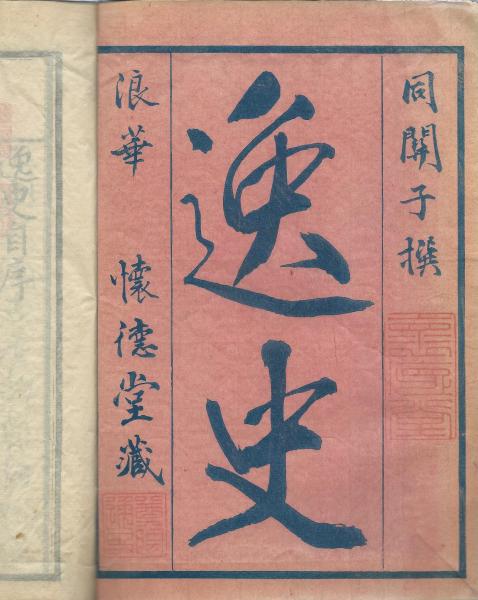 同關子撰
逸史
浪華 懷德堂藏
逸史自序